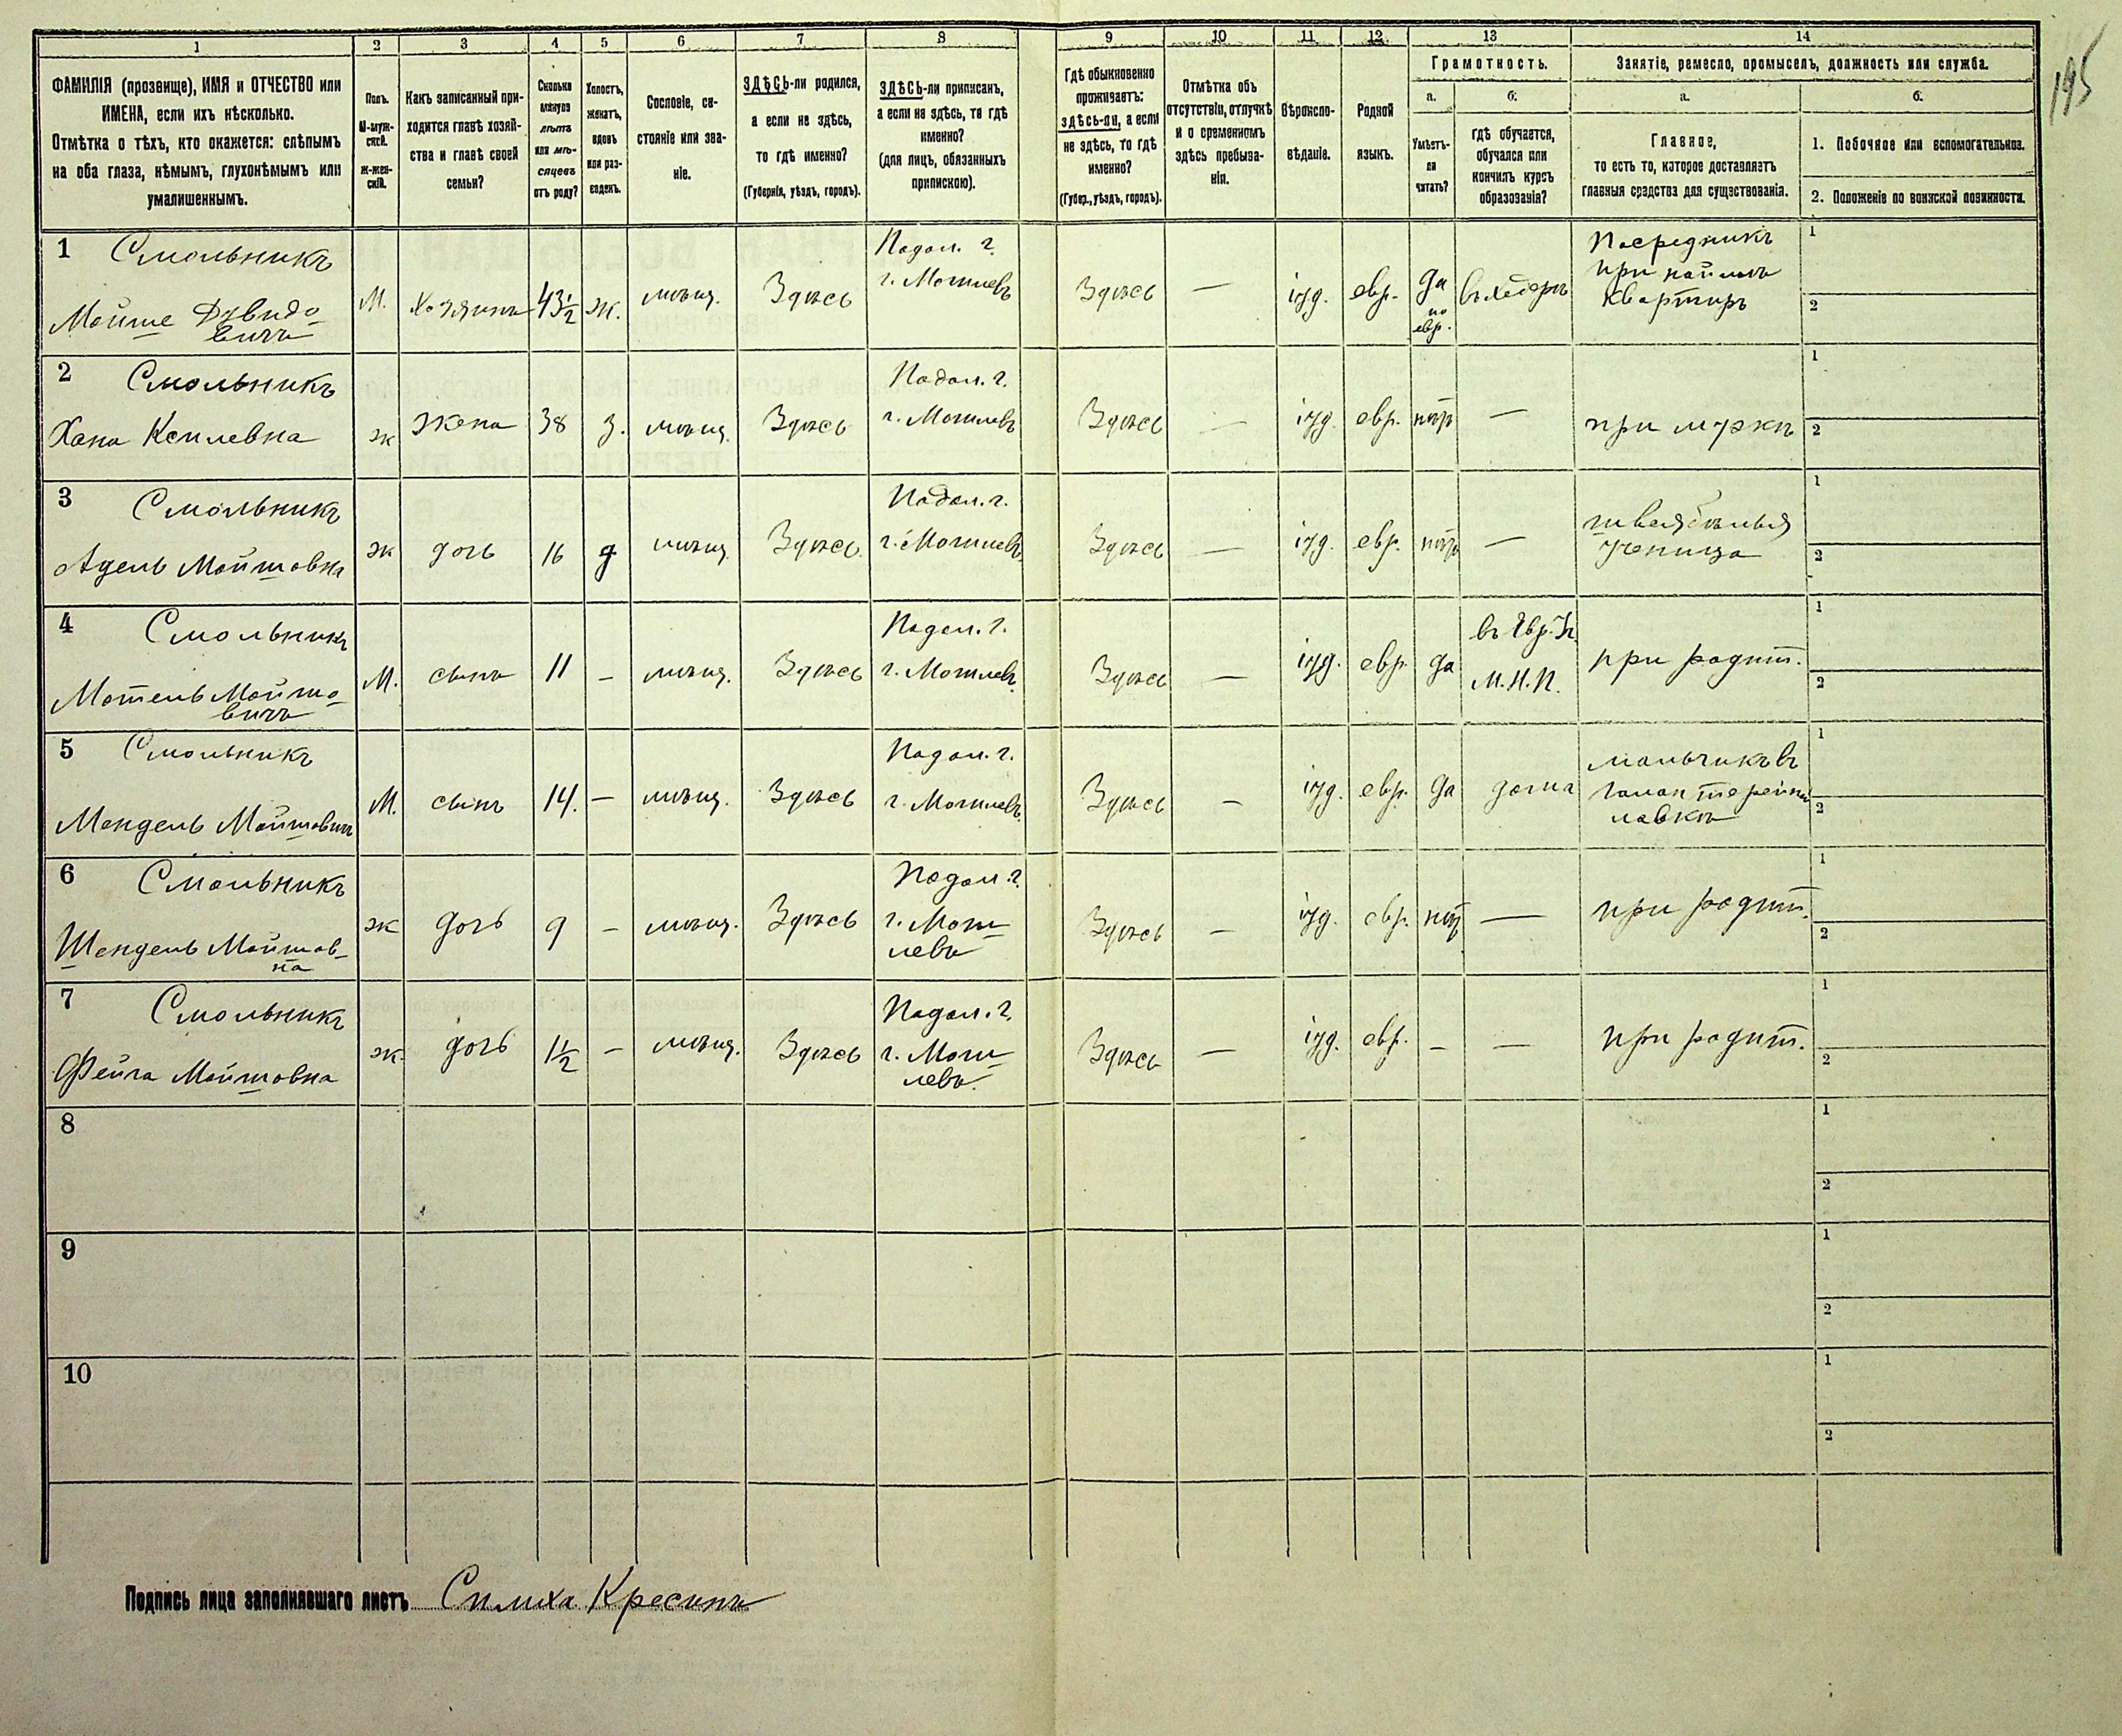 195
1 2 3 4 5 6 7 8 9 10 11 12 13 14
ФАМИЛІЯ (прозвище), ИМЯ и ОТЧЕСТВО или
ИМЕНА, если ихъ нѣсколько.
Отмѣтка о тѣхъ, кто окажется: слѣпымъ
на оба глаза, нѣмымъ, глухонѣмымъ или
умалишеннымъ.
Полъ.
М-муж-
ской.
Ж-жен-
скій.
Какъ записанный при-
ходится главѣ хозяй-
ства и главѣ своей
семьи?
Сколько
минуло
лѣтъ
или мѣ-
сяцевъ
отъ роду?
Холостъ,
женатъ,
вдовъ
или раз-
веденъ.
Сословіе, со-
стояніе или зва-
ніе.
ЗДѢСЬ-ли родился,
а если не здѣсь,
то гдѣ именно?
(Губернія, уѣздъ, городъ).
ЗДѢСЬ-ли приписанъ,
а если не здѣсь, то гдѣ
именно?
(для лицъ, обязанныхъ
припискою).
Гдѣ обыкновенно
проживаетъ:
здѣсь-ли, а если
не здѣсь, то гдѣ
именно?
(Губер., уѣздъ, городъ).
Отмѣтка объ
отсутствіи, отлучкѣ
и о временномъ
здѣсь пребыва-
ніи.
Вѣроиспо-
вѣданіе.
Родной
языкъ.
Грамотность.
а.
Умѣетъ-
ли
читать?
б.
гдѣ обучается,
обучался или
кончилъ курсъ
образованія?
Занятіе, ремесло, промыселъ, должность или служба.
а.
Главное,
то есть то, которое доставляетъ
главныя средства для существованія.
б.
1. Побочное или вспомогательное.
2. Положеніе по воинской повинности.
1 Смольникъ
Мойше Дувидо-
вичъ
М. хозяинъ 43 1/2 ж. мѣщ. Здѣсь
Подол. г.
г. Могилевъ
Здѣсь — іуд. евр. да
по
евр.
въ хедерѣ
Посредникъ
при наймѣ
квартиръ
1
2
2 Смольникъ
Хана
ж жена 38 з. мѣщ. Здѣсь
Подол. г.
г. Могилевъ
Здѣсь — іуд. евр. нѣтъ — при мужѣ
1
2
3 Смольникъ
Адель Мойшовна
ж дочь 16 д мѣщ. Здѣсь
Подол. г.
г. Могилевъ
Здѣсь — іуд. евр. нѣтъ —
ученица
1
2
4 Смольникъ
Мотель Мойшо-
вичъ
М. сынъ 11 — мѣщ. Здѣсь
Подол. г.
г. Могилевъ
Здѣсь — іуд. евр. да
въ Евр. Уч.
М.Н.П.
при родит.
1
2
5 Смольникъ
Мендель Мойшовичъ
М. сынъ 14. — мѣщ. Здѣсь
Подол. г.
г. Могилевъ
Здѣсь — іуд. евр. да дома
мальчикъ въ
галантерейной
лавкѣ
1
2
6 Смольникъ
Шендель Мойшов-
на
ж дочь 9 — мѣщ. Здѣсь
Подол. г.
г. Моги-
левъ
Здѣсь — іуд. евр. нѣтъ — при родит.
1
2
7 Смольникъ
Фейга Мойшовна
ж. дочь 1 1/2 — мѣщ. Здѣсь
Подол. г.
г. Моги-
левъ.
Здѣсь — іуд. евр. — — при родит.
1
2
8
1
2
9
1
2
10
1
2
Подпись лица заполнявшаго листъ Симха Кресинъ